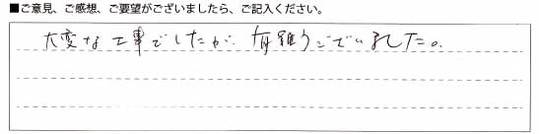 ■ご意見、ご感想、ご要望がございましたら、ご記入ください。
大変な工事でしたが、有難うございました。